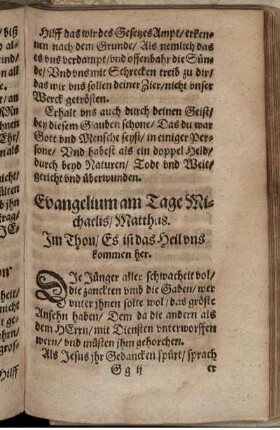 Hilff das wir des Gesezes Ampt/ erken-
nen nach dem Grunde/ Als nemlich das
es vns verdampt/ vnd offenbahr die Sün-
de/ Vnd vns mit Schrecken treib zu dir/
das wir vns sollen deiner /nicht vnser
Werck getrösten.
Erhalt vns auch durch deinen Geist/
bey diesem Glauben schone/ Das du war
Gott vnd Mensche seyst/ in einiger Per-
sone/ Vnd habest als ein doppel Held/
durch beyd Naturen/ Todt vnd Welt/
gericht vnd überwunden.
Evangelium am Tage Mi-
chaelis/ Matth. 18.
Im Thon/ Es ist das Heil vns
kommen her.
DIe Jünger aller schwacheit vol/
die zanckten vmb die Gaben/ wer
vnter jhnen solte wol/ das gröste
Ansehn haben/ Dem da die andern als
dem HErrn/ mit Diensten vnterworffen
wern/ vnd müsten jhm gehorchen.
Als Jesus jhr Gedancken spürt/ sprach
G g ij
er